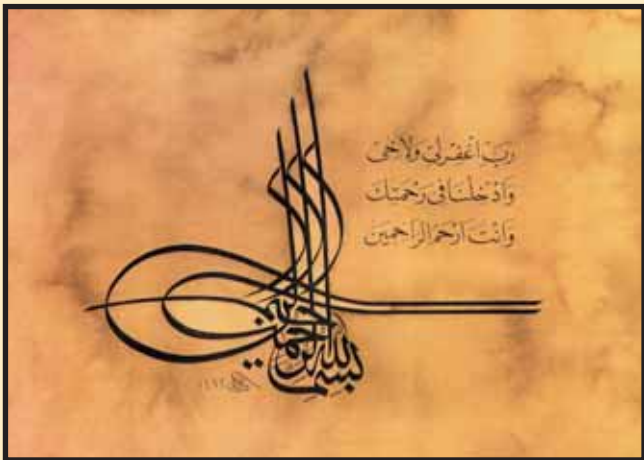 رب اغفرلي ولأخي
وادخلنا في رحمتك
وانت ارحم الراحمين
بسم الله الرحمن الرحيم